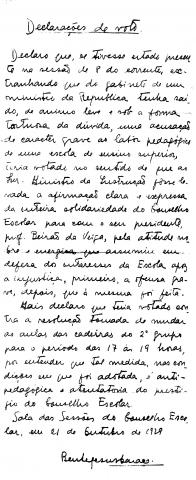 Declarações de voto.
Declaro que, se tivesse estado presen-
te na sessão de 8 do corrente, ex-
tranhando que do gabinete de um
ministro da República tenha saí-
do, de animo leve e sob a forma
tortuosa da dúvida, uma acusação
de caracter grave ao labor pedagógico
de uma escola de ensino superior,
teria votado no sentido de que ao
Sr. Ministro da Instrução fosse le-
vada a afirmação clara e expressa
da inteira solidariedade do Conselho
Escolar para com o seu presidente,
prof. Beirão da Veiga, pela atitude no-
bre e que assumiu em
defesa dos interesses da Escola após
a injustiça, primeiro, a ofensa gra-
ve, depois, que à mesma foi feita.
Mais declaro que teria votado con-
tra a resolução tomada de mudar
as aulas das cadeiras do 2º grupo
para o periodo das 17 às 19 horas,
por entender que tal medida, nas con-
dições em que foi adotada, é anti-
pedagogica e atentatoria do prestí-
gio do Conselho Escolar.
Sala das Sessões do Conselho Esco-
lar, em 21 de Outubro de 1929